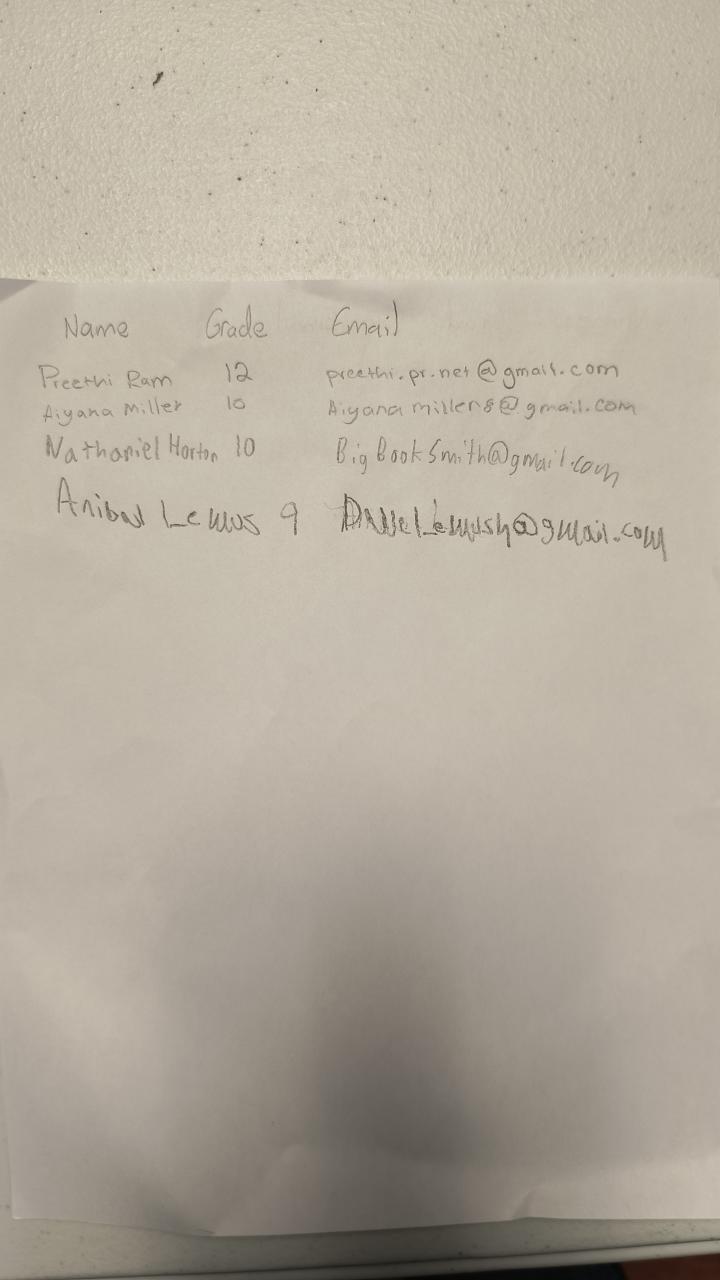 Name Grade Email
Preethi Ram 12 preethi.pr.net@gmail.com
Aiyana Miller 10 Aiyanamiller8@gmail.com
Nathaniel Horton 10 BigBookSmith@gmail.com
Anibal Lemus 9